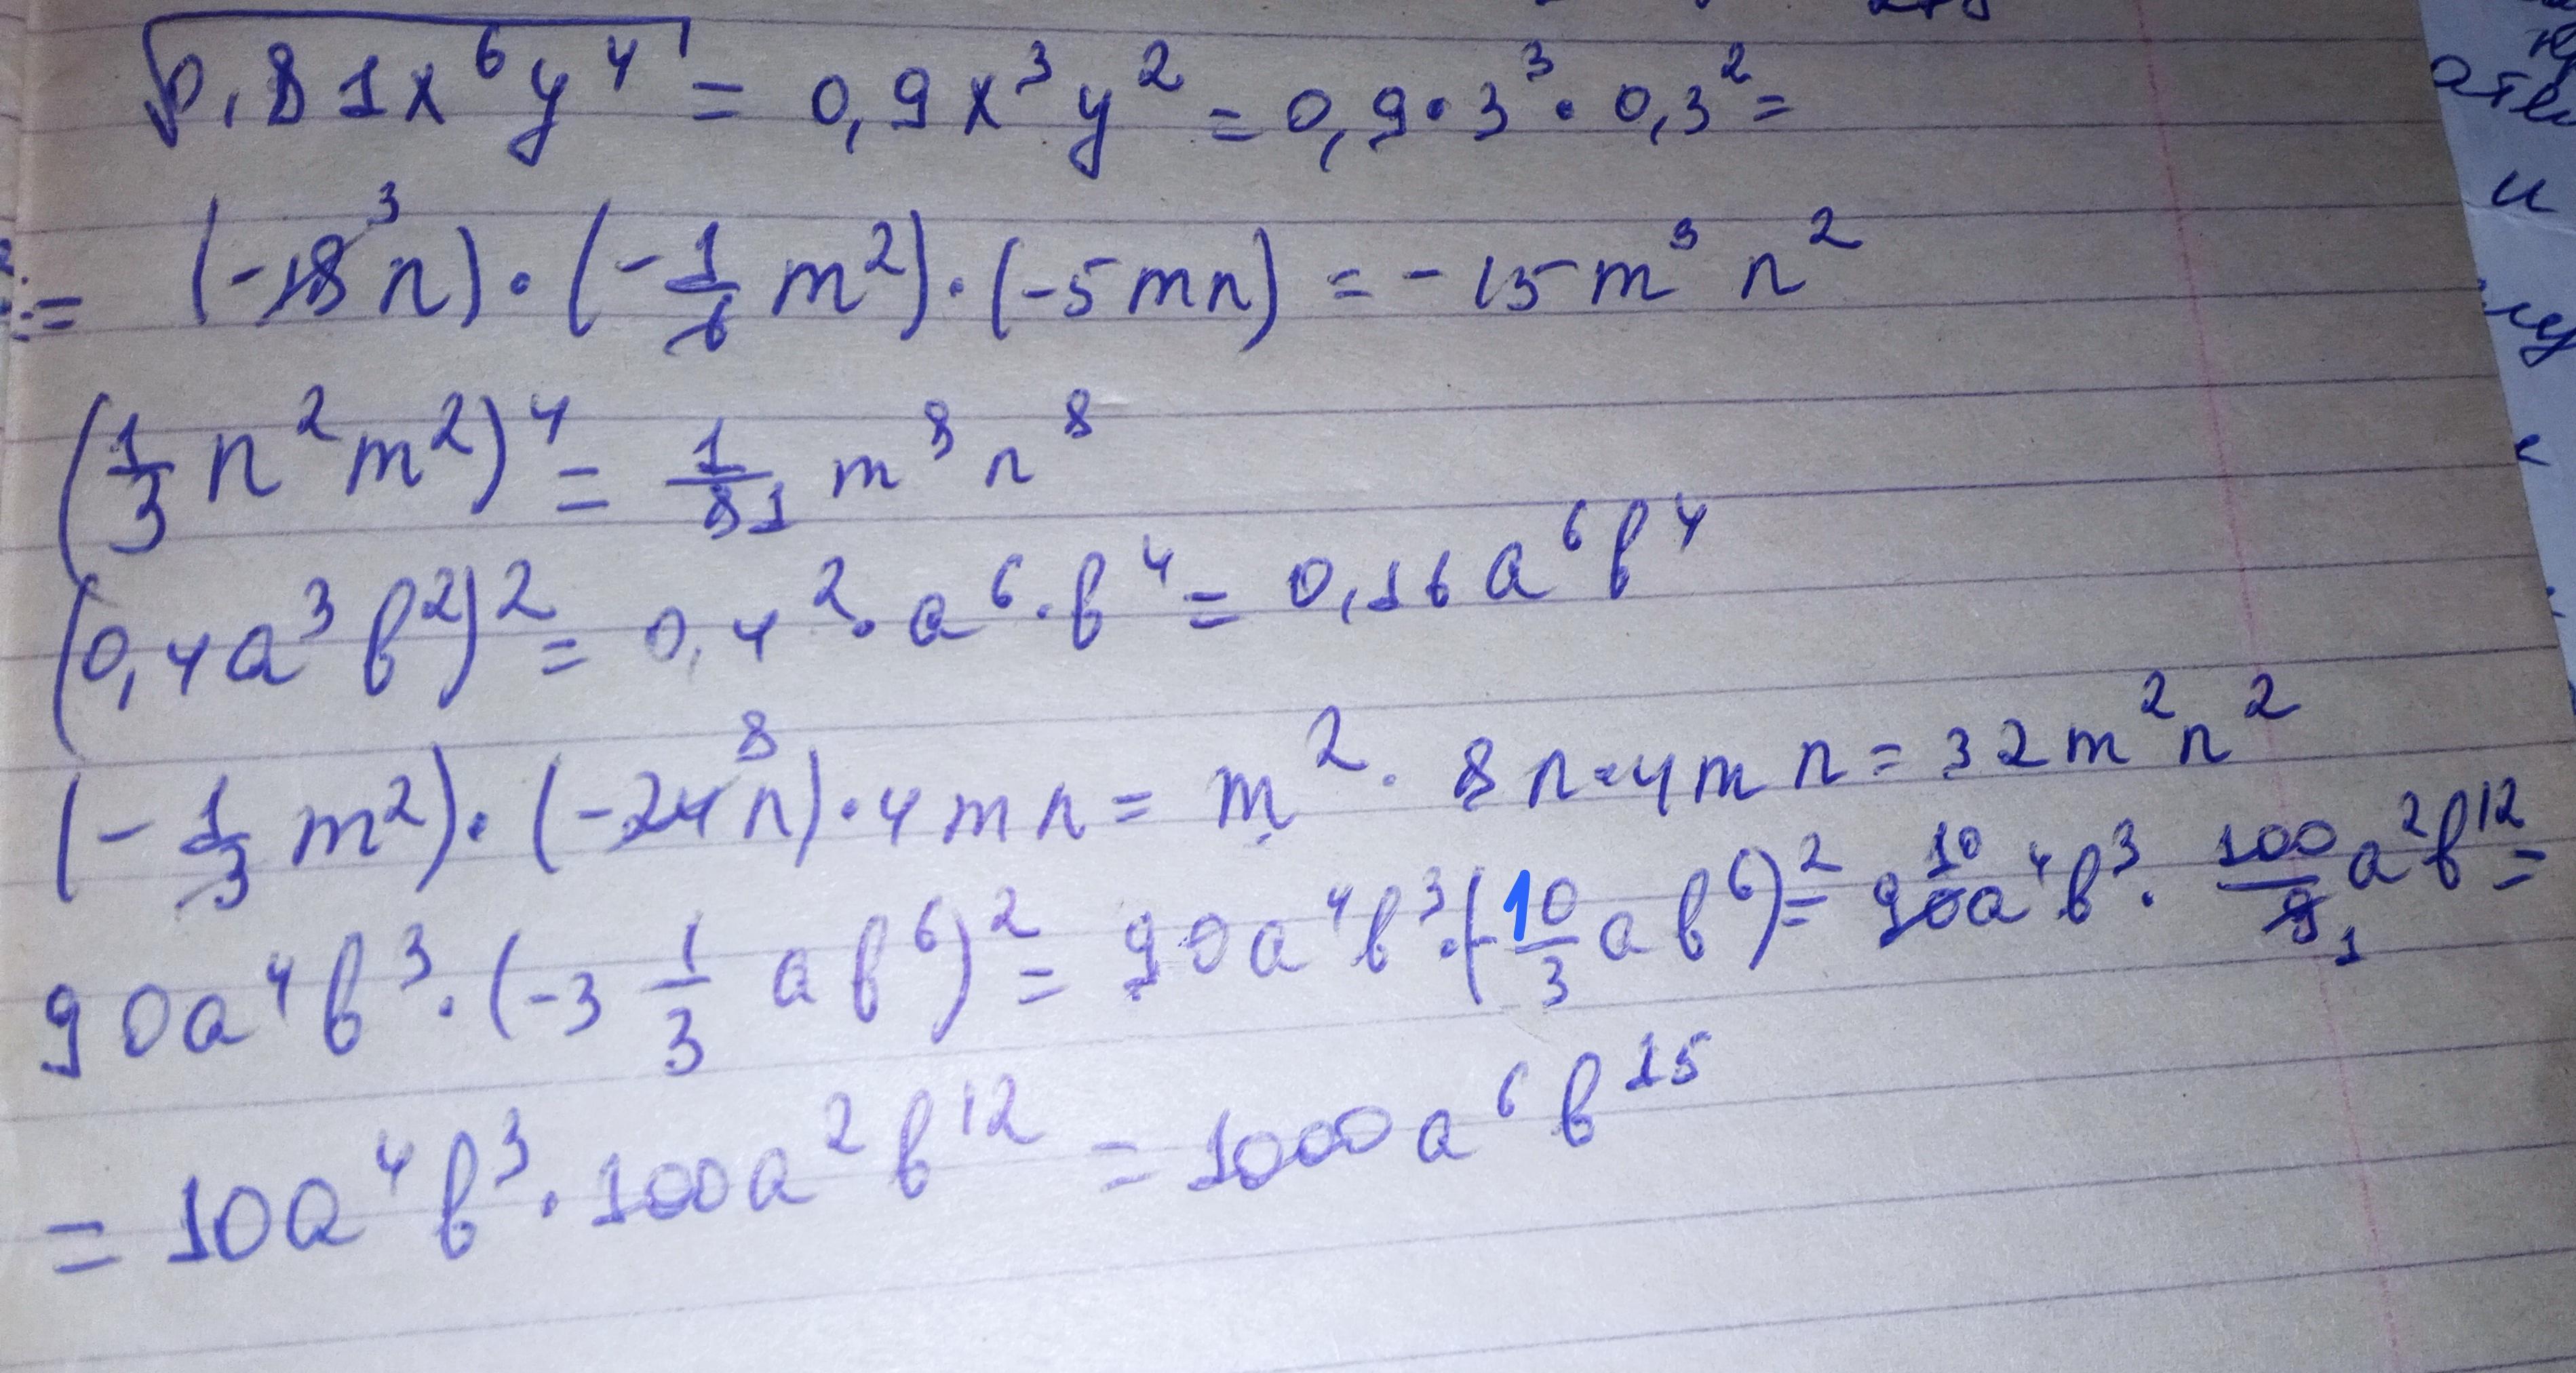 √0,81x⁶y⁴ = 0,9x³y² = 0,9·3³·0,3² =
= (-18³n)·(-1/6 m²)·(-5mn) = -15m³n²
(1/3 n²m²)⁴ = 1/81 m⁸n⁸
(0,4a³b²)² = 0,4²·a⁶·b⁴ = 0,16a⁶b⁴
(-1/3 m²)·(-24⁸n)·4mn = m²·8n·4mn = 32m²n²
90a⁴b³·(-3 1/3 ab⁶)² = 90a⁴b³·(-10/3 ab⁶)² = 90¹⁰a⁴b³·100/9₁ a²b¹² =
= 10a⁴b³·100a²b¹² = 1000a⁶b¹⁵